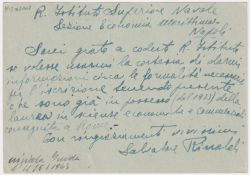 R. Istituto Superiore Navale
Sezione Economia Marittima
Napoli
Sarei grato a codest. R. Istituto
se volesse usarmi la cortesia di darmi
informazioni circa le formalità necessarie
per l'iscrizione tenendo presente
che sono già in possesso della
laurea in scienze economiche e commerciali
conseguita a
Con ringraziamenti
Salvatore